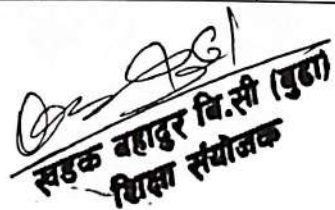 खडक बहादुर बि.सी (बुढा)
शिक्षा संयोजक